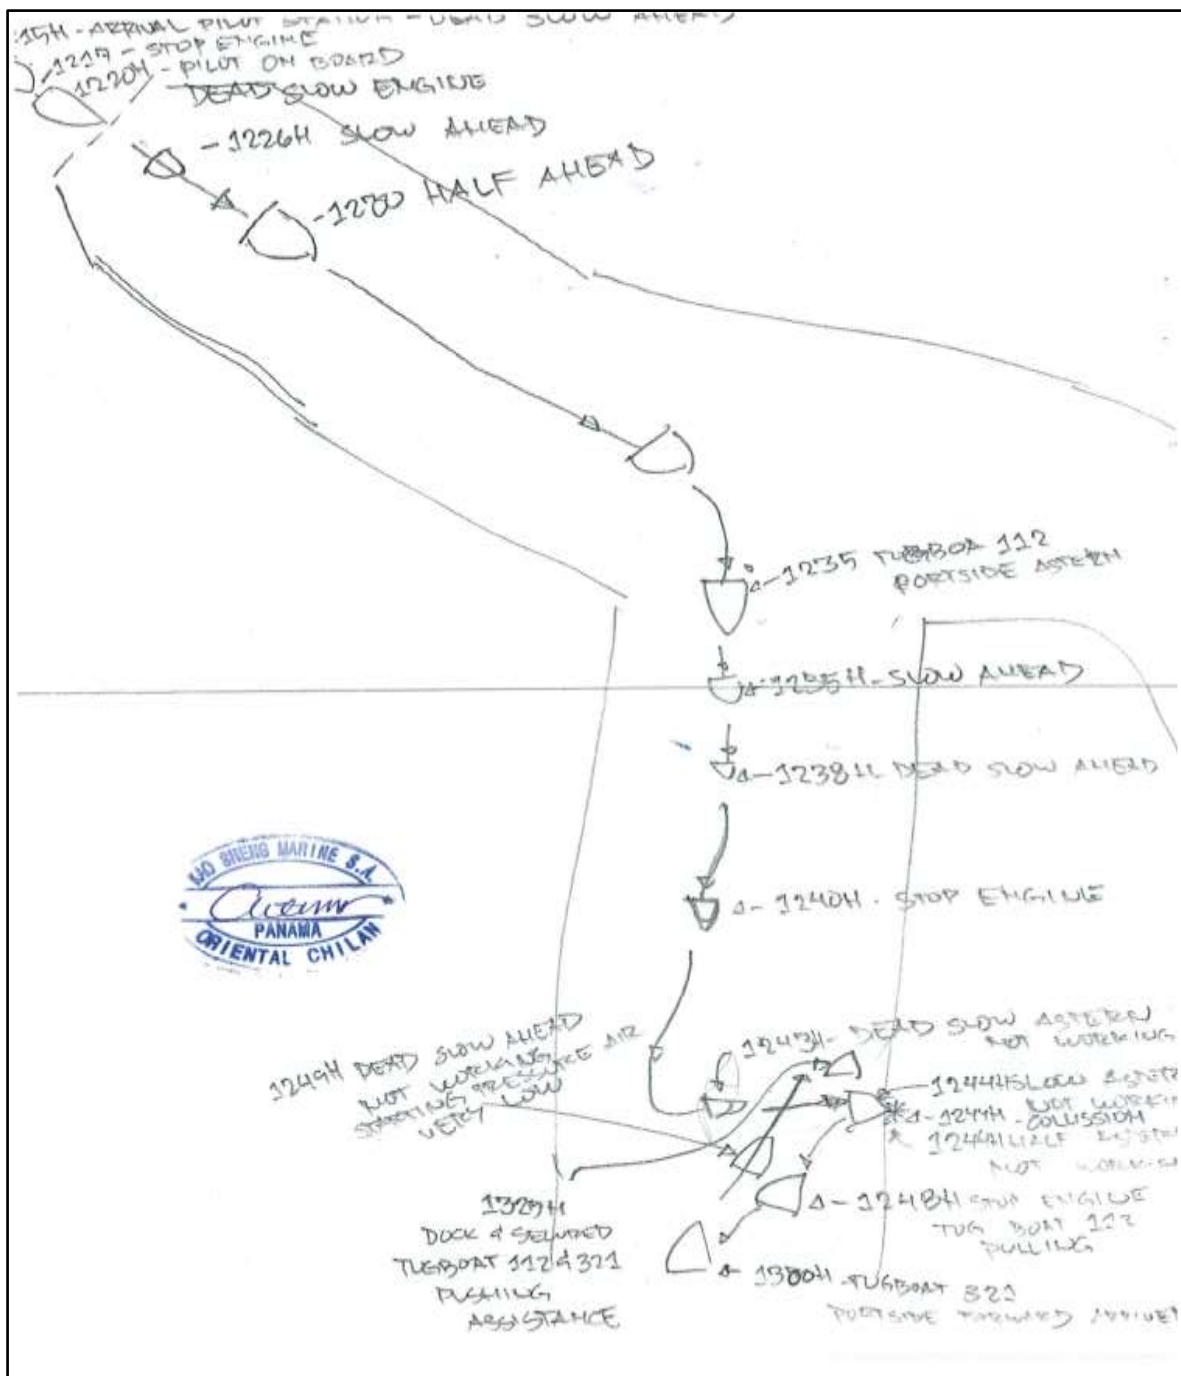 15H - ARRIVAL PILOT STATION - DEAD SLOW AHEAD
1217 - STOP ENGINE
1220H - PILOT ON BOARD
DEAD SLOW ENGINE
- 1226H SLOW AHEAD
- 1230 HALF AHEAD
- 1235 TUGBOA 112
PORTSIDE ASTERN
1235H - SLOW AHEAD
- 1238H DEAD SLOW AHEAD
- 1240H - STOP ENGINE
SHENG MARINE S.A.
PANAMA
ORIENTAL CHILAN
1243H - DEAD SLOW ASTERN
NOT WORKING
1249H DEAD SLOW AHEAD
NOT WORKING
STARTING PRESSURE AIR
VERY LOW
- 1244H SLOW ASTER
NOT WORKIN
- 1244H - COLLISSION
1244H HALF ASTERN
NOT WORKIN
- 1248H STOP ENGINE
TUG BOAT 112
PULLING
1329H
DOCK & SECURED
TUGBOAT 112 & 321
PUSHING
ASSISTANCE
1300H - TUGBOAT 321
PORTSIDE FORWARD ARRIVE